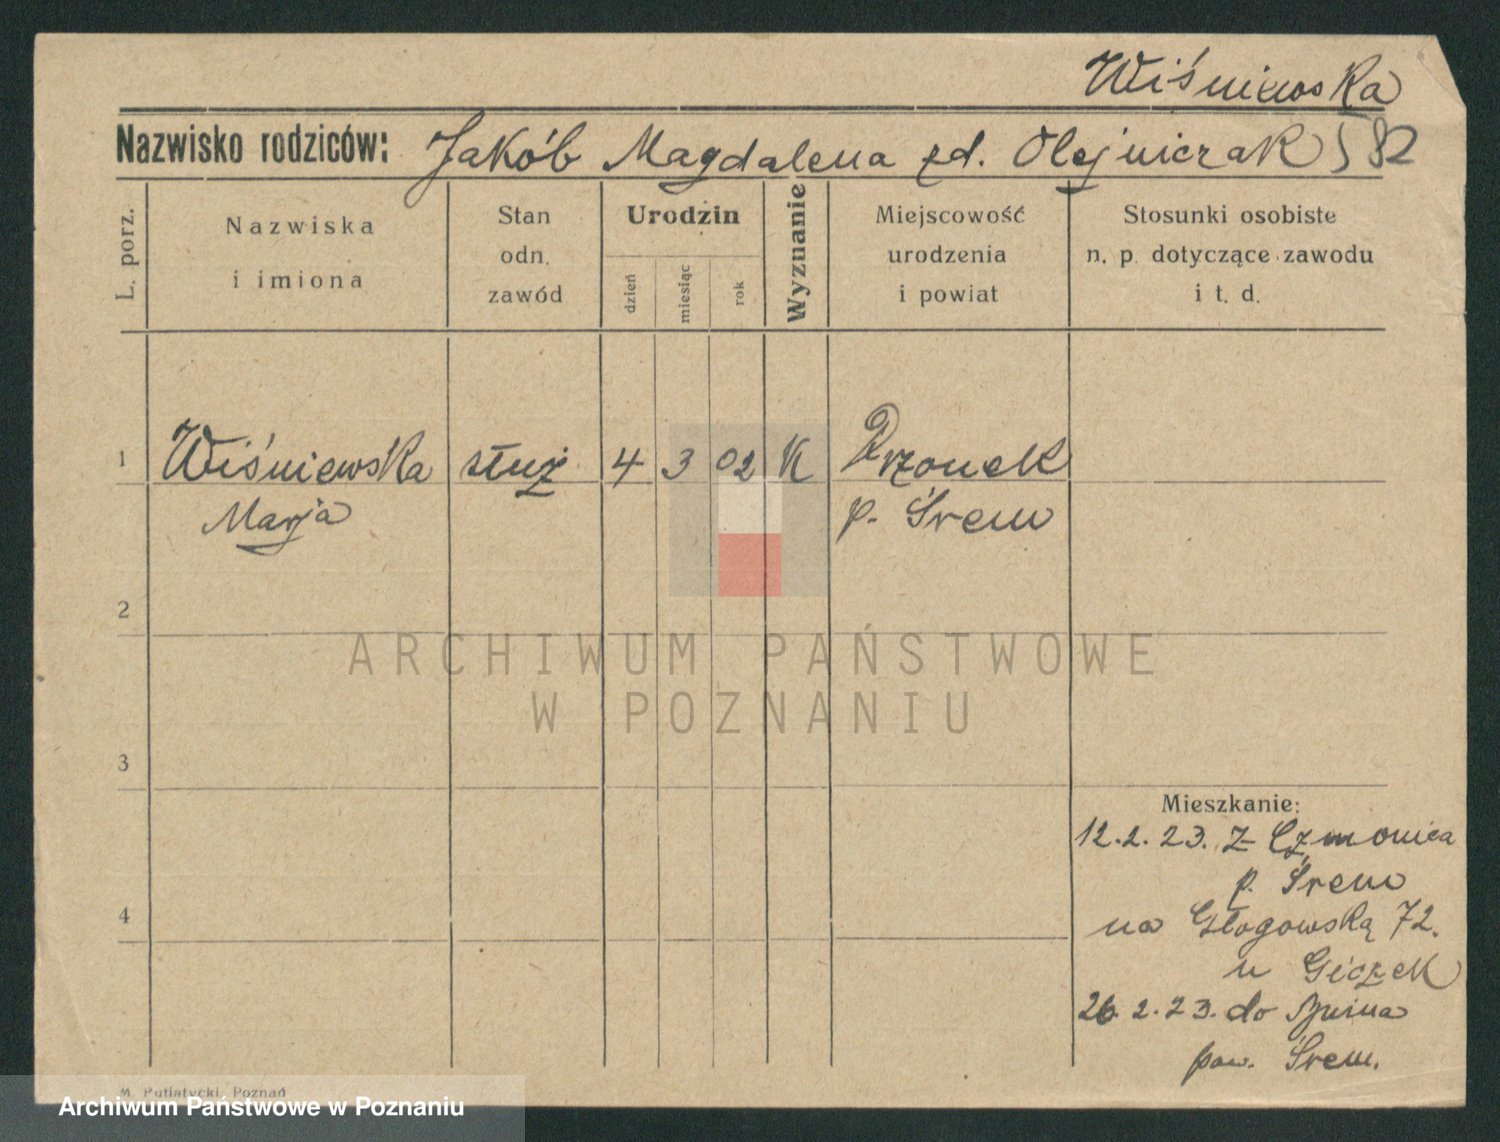 Wiśniewska
Nazwisko rodziców: Jakób Magdalena zd. Olejniczak 582
L. porz.
Nazwiska
i imiona
Stan
odn.
zawód
Urodzin
dzień
miesiąc
rok
Wyznanie
Miejscowość
urodzenia
i powiat
Stosunki osobiste
n. p. dotyczące zawodu
i t. d.
1 Wiśniewska służ 4 3 02 K
Marja p. Śrem
2
ARCHIWUM PAŃSTWOWE
W POZNANIU
3
Mieszkanie:
12.2.23. z Czmonica
p. Śrem
4
na Głogowską 72.
u Giczek
26.2.23. do
pow. Śrem.
M. Putiatycki, Poznań
Archiwum Państwowe w Poznaniu